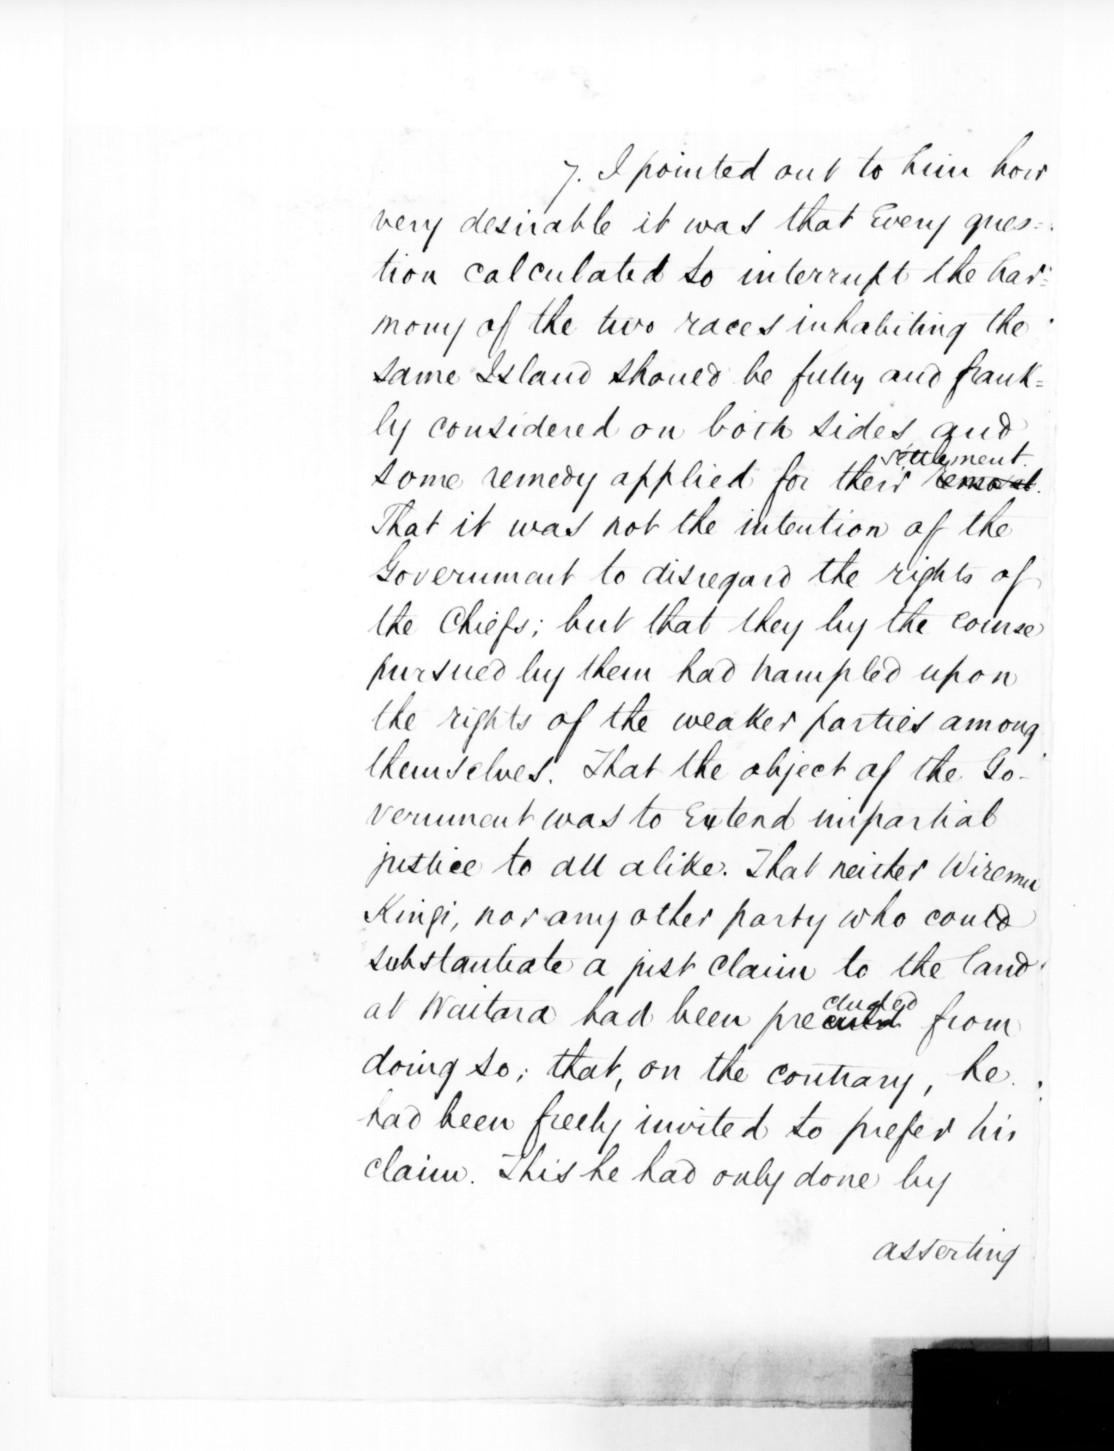 7. I pointed out to him how
very desirable it was that Every ques=
tion calculated to interrupt the har=
mony of the two races inhabiting the
same Island should be fully and frank=
ly considered on both sides and
settlement.
some remedy applied for their removal.
That it was not the intention of the
Government to disregard the rights of
the Chiefs; but that they by the course
pursued by them had trampled upon
the rights of the weaker parties among
themselves. That the object of the Go-
vernment was to Extend impartial
justice to all alike. That neither Wiremu
Kingi, nor any other party who could
substantiate a just claim to the land
at Waitara had been precluded from
doing so; that, on the contrary, he
had been freely invited to prefer his
claim. This he had only done by
asserting